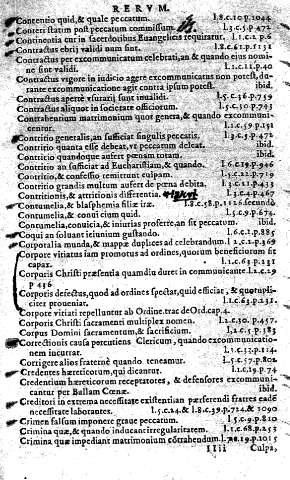 RERVM.
Contentio quid, & quale peccatum. l.8.c.10.p.1044
Conteri statim post peccatum commissum. l.3.c.5.p.472
Continentia cur in sacerdotibus Euangelicis requiratur. l.1.c.1.p.6
Contractus ebrij validi num sint. l.8.c.61.p.1131
Contractus per excommunicatum celebrati, an & quando eius nomine sint validi. l.1.c.11.p.40
Contractus vigore in indicio agere excommunicatus non potest, durante excommunicatione agit contra ipsum potest. ibid.
Contractus aperte vsurarij sunt inualidi. l.5.c.36.p.759
Contractus aliquot in societate officiorum. l.5.c.30.p.743
Contrahentium matrimonium quot genera, & quando excommunicentur. l.1.c.59.p.151
Contritio generalis, an sufficiat singulis peccatis. l.3.c.5.p.471
Contritio quanta esse debeat, vt peccatum deleat. ibid.
Contritio quandoque aufert pœnam totam. ibid.
Contritio an sufficiat ad Eucharistiam, & quando. l.6.c.19.p.946
Contritio, & confessio remittunt culpam. l.5.c.22.p.519
Contritio grandis multum aufert de pœna debita. l.3.c.11.p.433
Contritionis, & attritionis differentia. l.3.c.4.p.467
Contumelia, & blasphemia filiæ iræ. l.8.c.58.p.1126 secundò
Contumelia, & conuicium quid. l.5.c.9.p.674.
Contumelia, conuicia, & iniurias proferre, an sit peccatum. ibid.
Coqui an soluant ieiunium gustando. l.6.c.2.p.885
Corporalia munda, & mappæ duplices ad celebrandum. l.2.c.2.p.369
Corpore vitiatus iam promotus ad ordines, quorum beneficiorum sit capax. l.1.c.63.p.131
Corporis Christi præsentia quamdiu duret in communicante. l.2.c.29
p 456
Corporis defectus, quod ad ordines spectat, quid efficiat, & quotupliciter proueniat. l.1.c.63.p.131.
Corpore vitiati repelluntur ab Ordine. trac. de Ord. cap. 4.
Corporis Christi sacramenti multiplex nomen. l.2.c.30.p.457.
Corpus Domini sacramentum, & sacrificium. l.2.c.5.p.383
Correctionis causa percutiens Clericum, quando excommunicationem incurrat. l.1.c.32.p.114
Corrigere alios fraternè quando teneamur. l.5.c.57.p.802
Credentes hæreticorum, qui dicantur. l.1.c.19.p.74
Credentium hæreticorum receptatores, & defensores excommunicantur per Bullam Cœnæ. ibid.
Creditori in extrema necessitate existenti an præferendi fratres eadem necessitate laborantes. l.5.c.24. & l.8.c.39.p.724. & 1090
Crimen falsum imponere graue peccatum. l.5.c.9.p.810
Crimina quæ, & quando inducant irregularitatem. l.1.c.68.p.153
Crimina quæ impediant matrimonium cōtrahendum. l.7.c.19.p.1015
IIii Culpa,